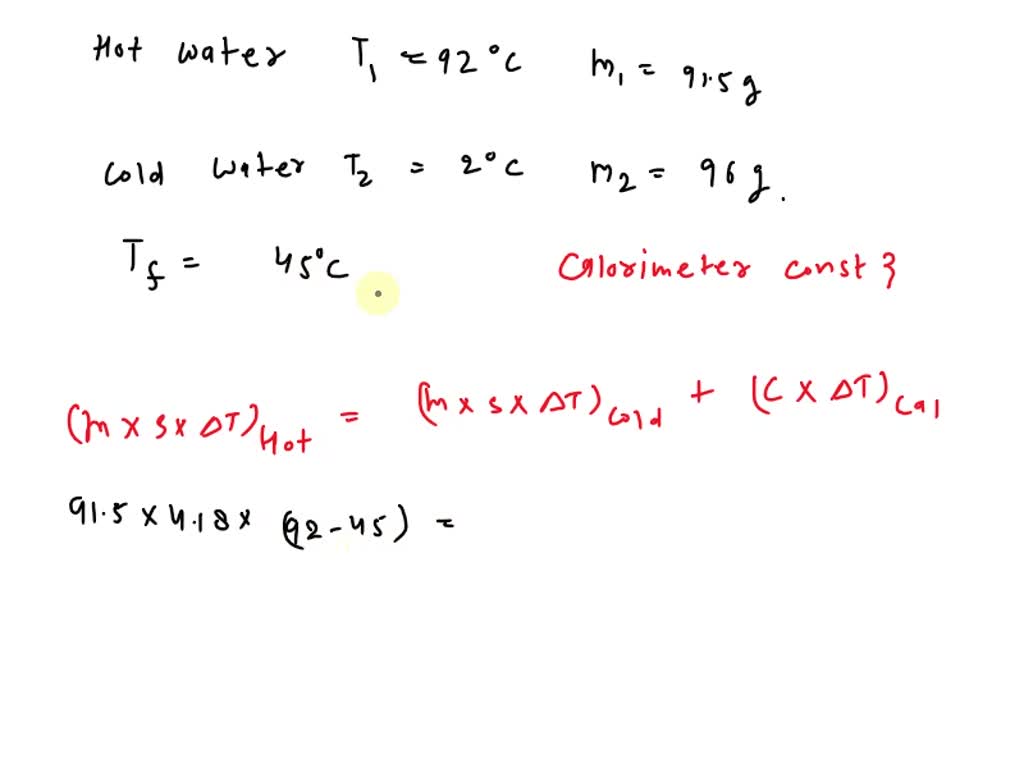 Hot water T₁ = 92°C m₁ = 91.5 g
Cold water T₂ = 2°C m₂ = 96 g.
T_f = 45°C Calorimeter const }
(m × s × ΔT)_Hot = (m × s × ΔT)_Cold + (C × ΔT)_Cal
91.5 × 4.18 × (92 - 45) =